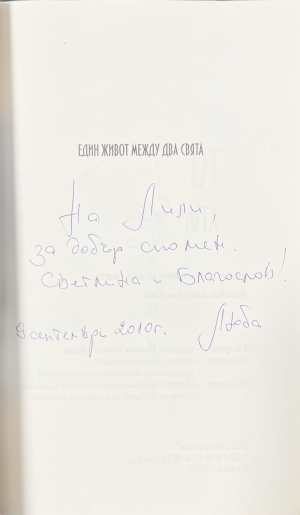 ЕДИН ЖИВОТ МЕЖДУ ДВА СВЯТА
На Лили,
за добър спомен.
Светлина и Благослов!
9 септември 2010г. Люба